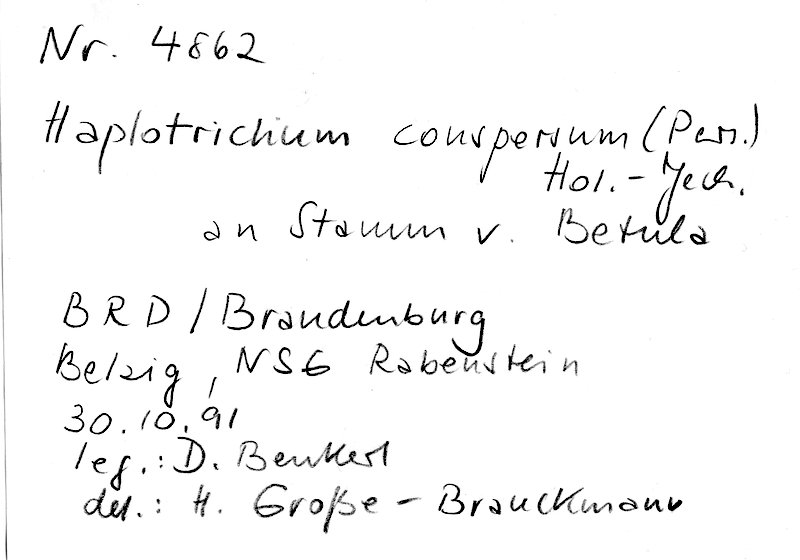 Nr. 4862
Haplotrichum conspersum (Pers.)
Hol.-Jech.
an Stamm v. Betula
BRD/Brandenburg
Belzig, NSG Rabenstein
30.10.91
leg.: D. Benkert
det.: H. Große-Brauckmann